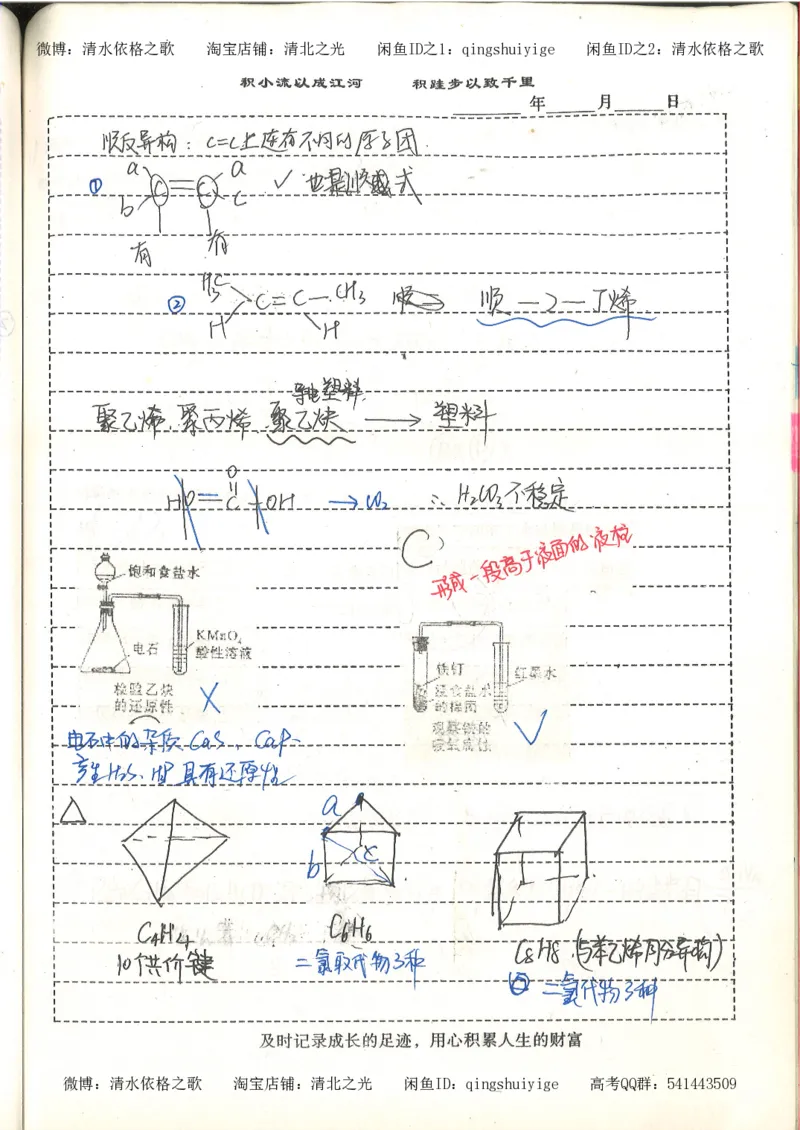 微博：清水依格之歌 淘宝店铺：清北之光 闲鱼ID之1：qingshuiyige 闲鱼ID之2：清水依格之歌
积小流以成江河 积跬步以致千里
年 月 日
顺反异构：C=C上连有不同的原子团.
① a b C=C a c ✓ 也是顺式
有 有
② H3C H C=C CH3 H 顺 ⇒ 顺—2—丁烯
导电塑料.
聚乙烯、聚丙烯、聚乙炔 → 塑料
O
HO C OH → CO2 ∴ H2CO3不稳定
C
形成一段高于液面的液柱
饱和食盐水
KMnO4
酸性溶液
电石
检验乙炔
的还原性 ✗
铁钉
红墨水
的铁钉
✓
电石中的杂质 CaS、CaP
产生H2S、HP 具有还原性
△ a b c
C4H4 C6H6
10个共价键 二氯取代物3种
C8H8 (与苯乙烯同分异构)
二氯代物3种
及时记录成长的足迹，用心积累人生的财富
微博：清水依格之歌 淘宝店铺：清北之光 闲鱼ID：qingshuiyige 高考QQ群：541443509